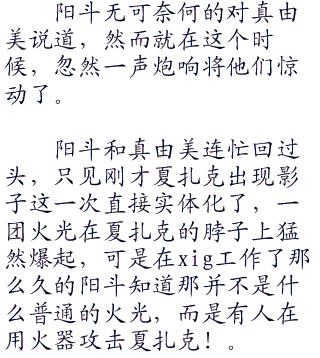 阳斗无可奈何的对真由
美说道，然而就在这个时
候，忽然一声炮响将他们惊
动了。
阳斗和真由美连忙回过
头，只见刚才夏扎克出现影
子这一次直接实体化了，一
团火光在夏扎克的脖子上猛
然爆起，可是在xig工作了那
么久的阳斗知道那并不是什
么普通的火光，而是有人在
用火器攻击夏扎克！。